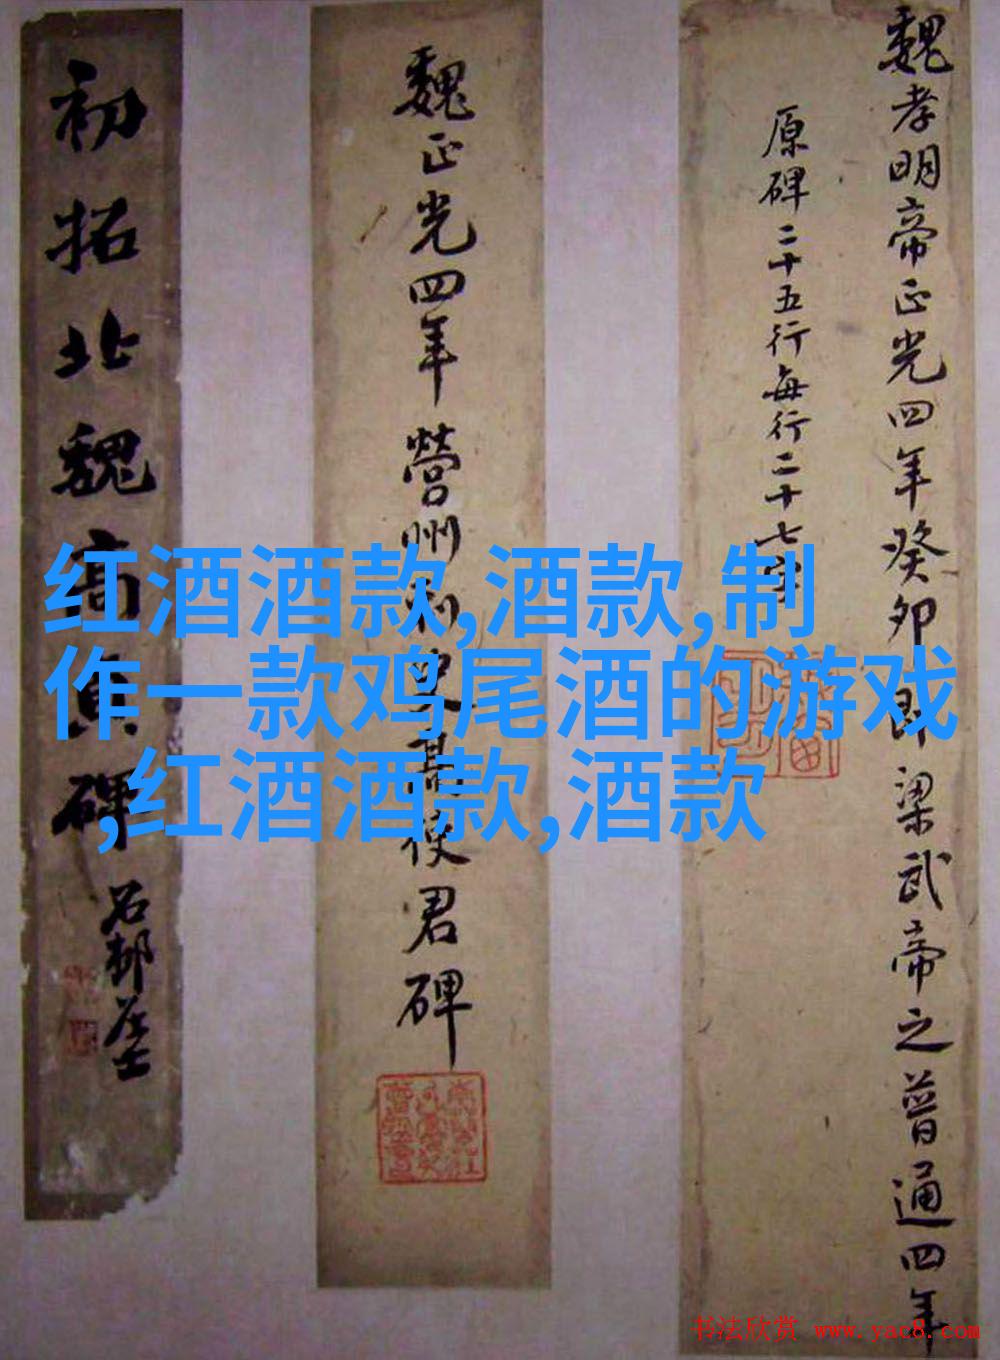 魏孝明帝正光四年癸卯即梁武帝之普通四年
原碑二十五行每行二十七字
魏正光四年營州刺史高使君碑
初拓北魏高貞碑
石邨居士
红酒酒款,酒款,制
作一款鸡尾酒的游戏
,红酒酒款,酒款
书法欣赏 www.yac8.com